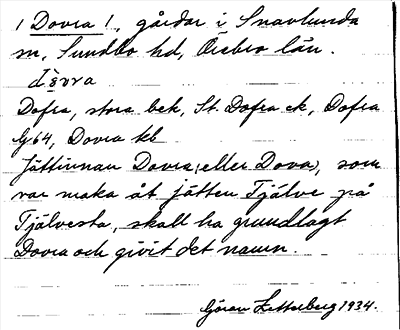 1 Dovra !, gårdar i Snavlunda
sn, Sundbo hd, Örebro län.
dåvra
Dofra, stora bek, St. Dofra ek, Dofra
G 64, Dovra kb
Jättinnan Dovra (eller Dova), som
var maka åt jätten Tjälve på
Tjälvesta, skall ha grundlagt
Dovra och givit det namn.
Göran Zetterberg 1934.